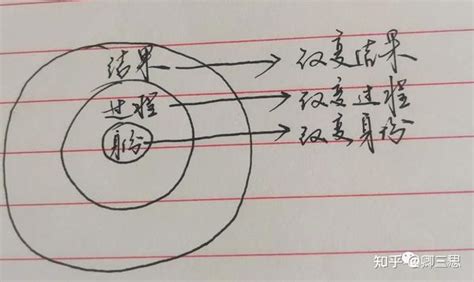 结果 → 改变结果
过程 → 改变过程
身份 → 改变身份
知乎 @卿三思